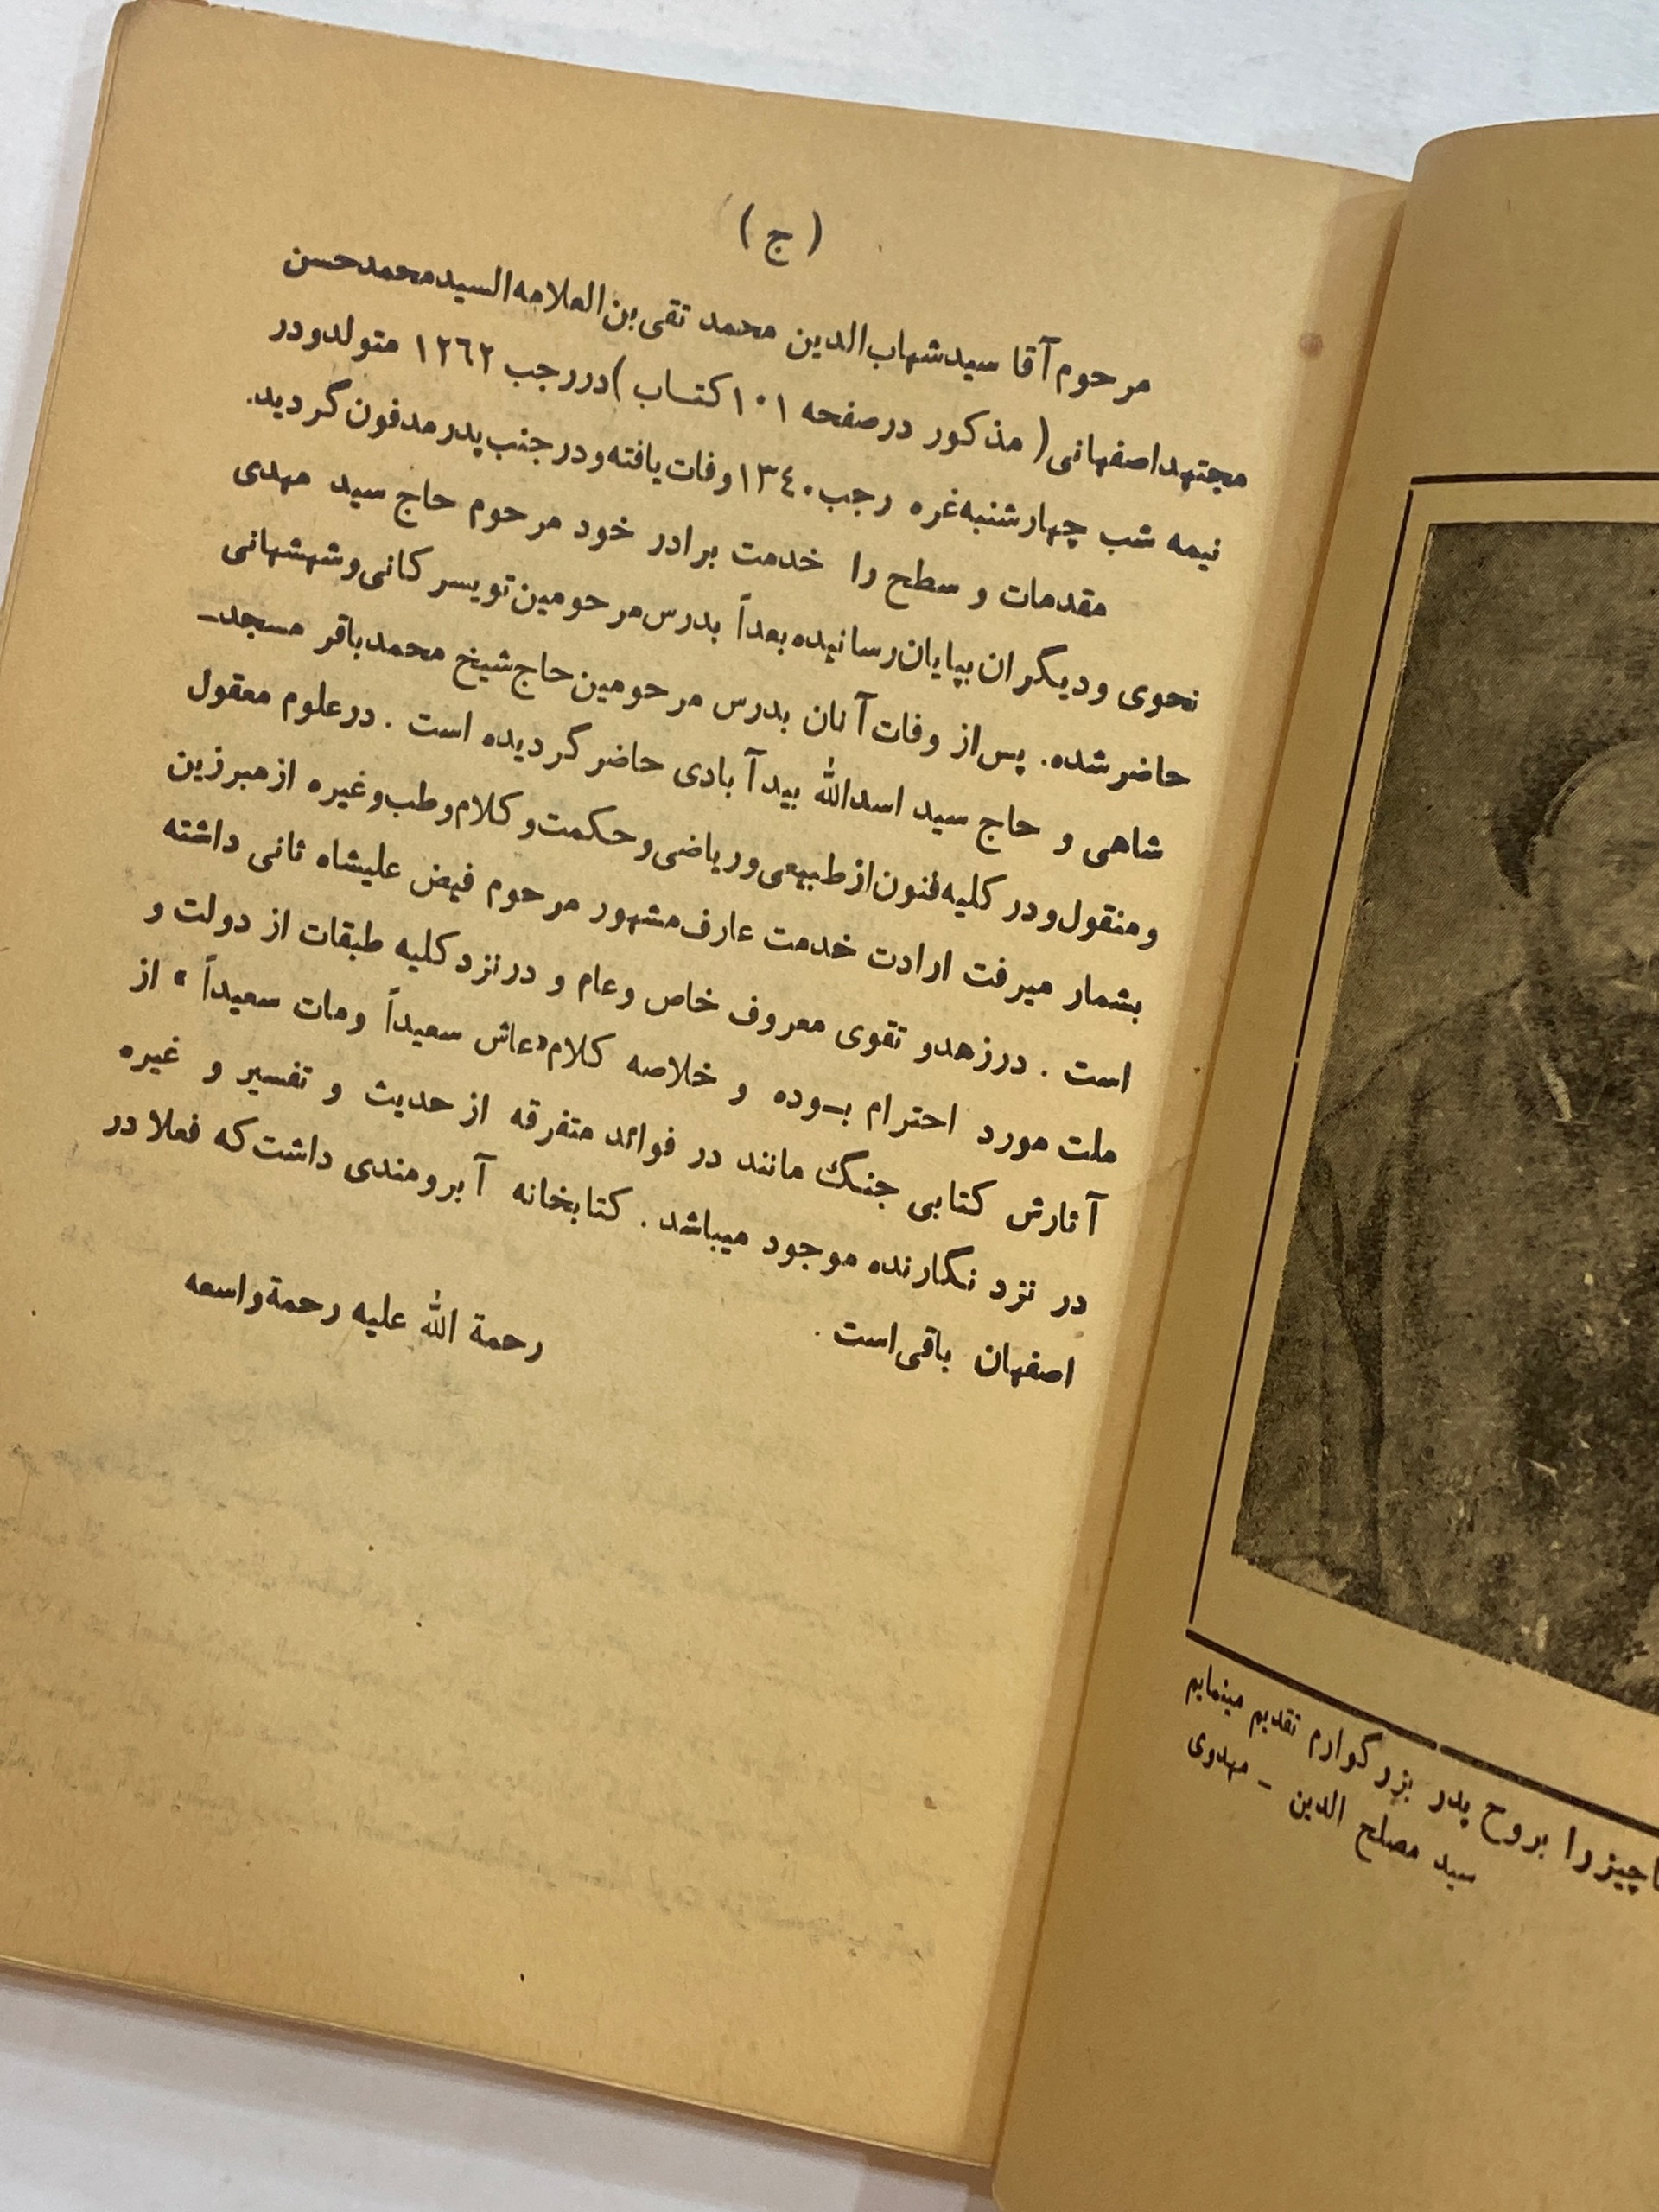 (ج)
مرحوم آقا سید شهاب‌الدین محمد تقی بن العلامه السید محمد حسن
مجتهد اصفهانی ( مذکور در صفحه ۱۰۱ کتاب ) در رجب ۱۲٦۲ متولد و در
نیمه شب چهارشنبه غره رجب ۱۳٤۰ وفات یافته و در جنب پدر مدفون گردید.
مقدمات و سطح را خدمت برادر خود مرحوم حاج سید مهدی
نحوی و دیگران بپایان رسانیده بعداً بدرس مرحومین تویسرکانی و شهشهانی
حاضر شده. پس از وفات آنان بدرس مرحومین حاج شیخ محمد باقر مسجد-
شاهی و حاج سید اسدالله بیدآبادی حاضر گردیده است . در علوم معقول
و منقول و در کلیه فنون از طبیعی و ریاضی و حکمت و کلام و طب و غیره از مبرزین
بشمار میرفت ارادت خدمت عارف مشهور مرحوم فیض علیشاه ثانی داشته
است . در زهد و تقوی معروف خاص و عام و در نزد کلیه طبقات از دولت و
ملت مورد احترام بـوده و خلاصه کلام «عاش سعیداً ومات سعیداً » از
آثارش کتابی جنگ مانند در فوائد متفرقه از حدیث و تفسیر و غیره
در نزد نگارنده موجود میباشد . کتابخانه آبرومندی داشت که فعلا در
اصفهان باقی است .
رحمة الله علیه رحمة واسعه
را بروح پدر بزرگوارم تقدیم مینمایم
سید مصلح الدین - مهدوی